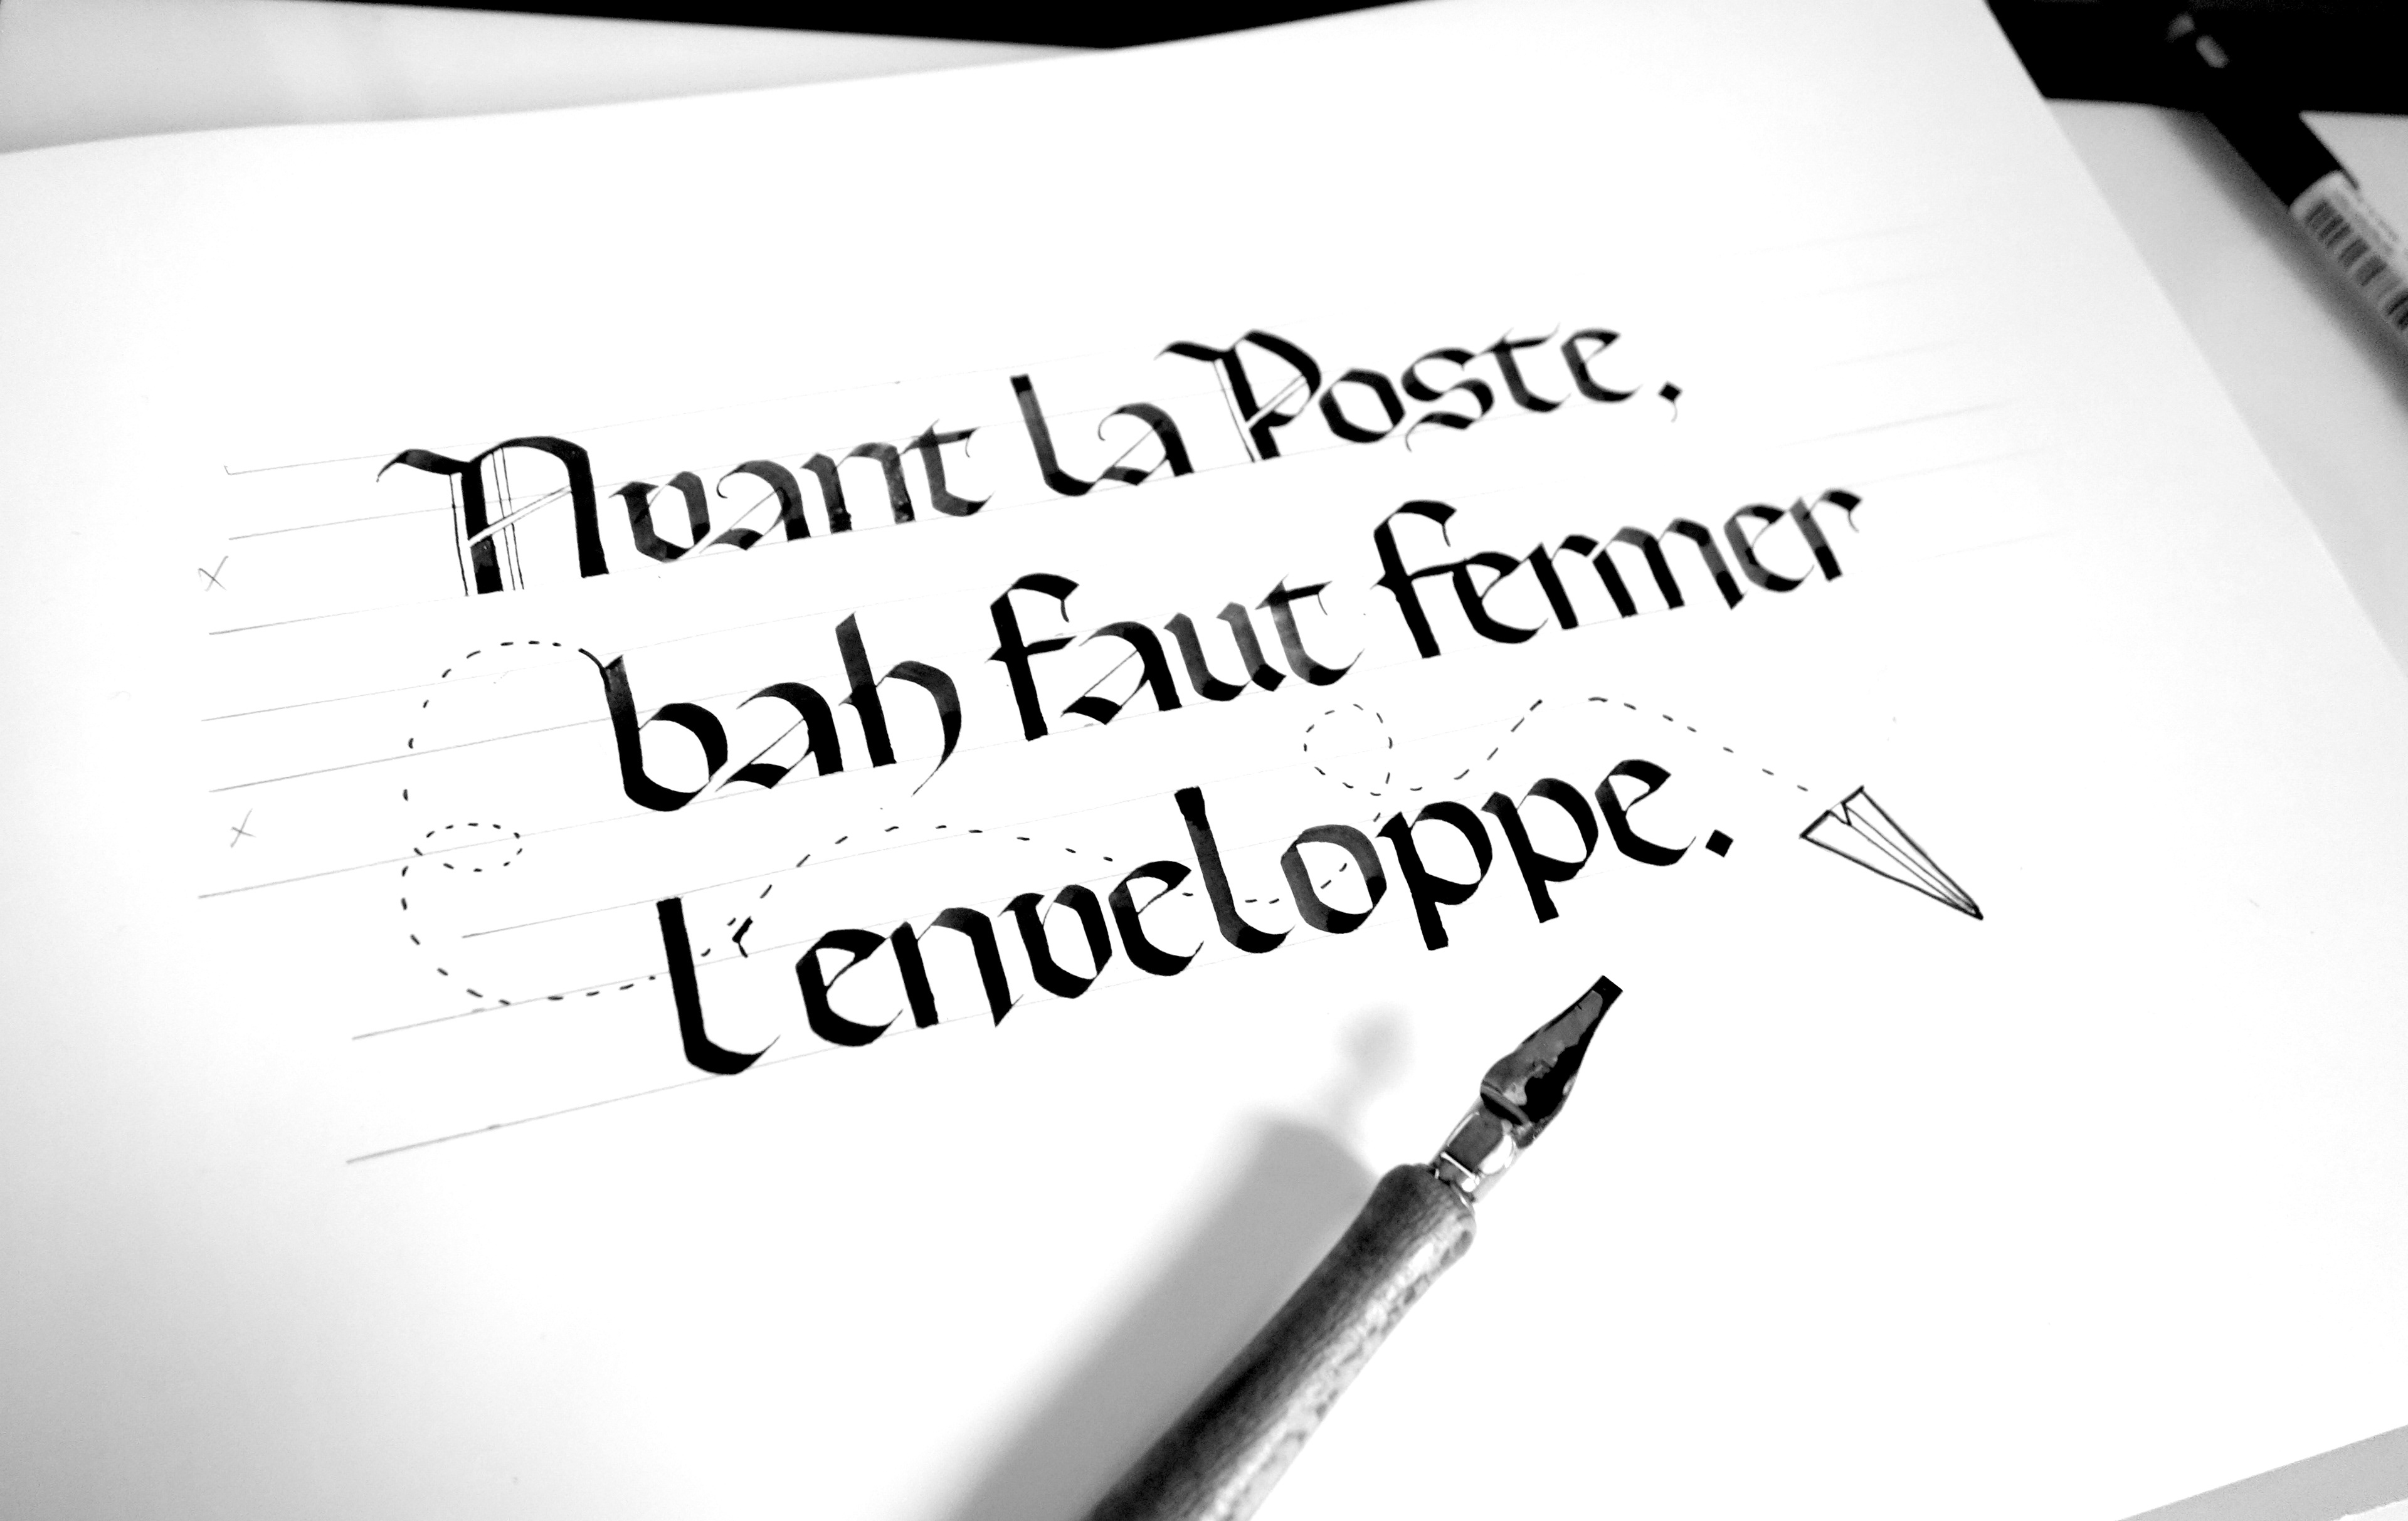 Avant la Poste,
bah faut fermer
l'enveloppe.